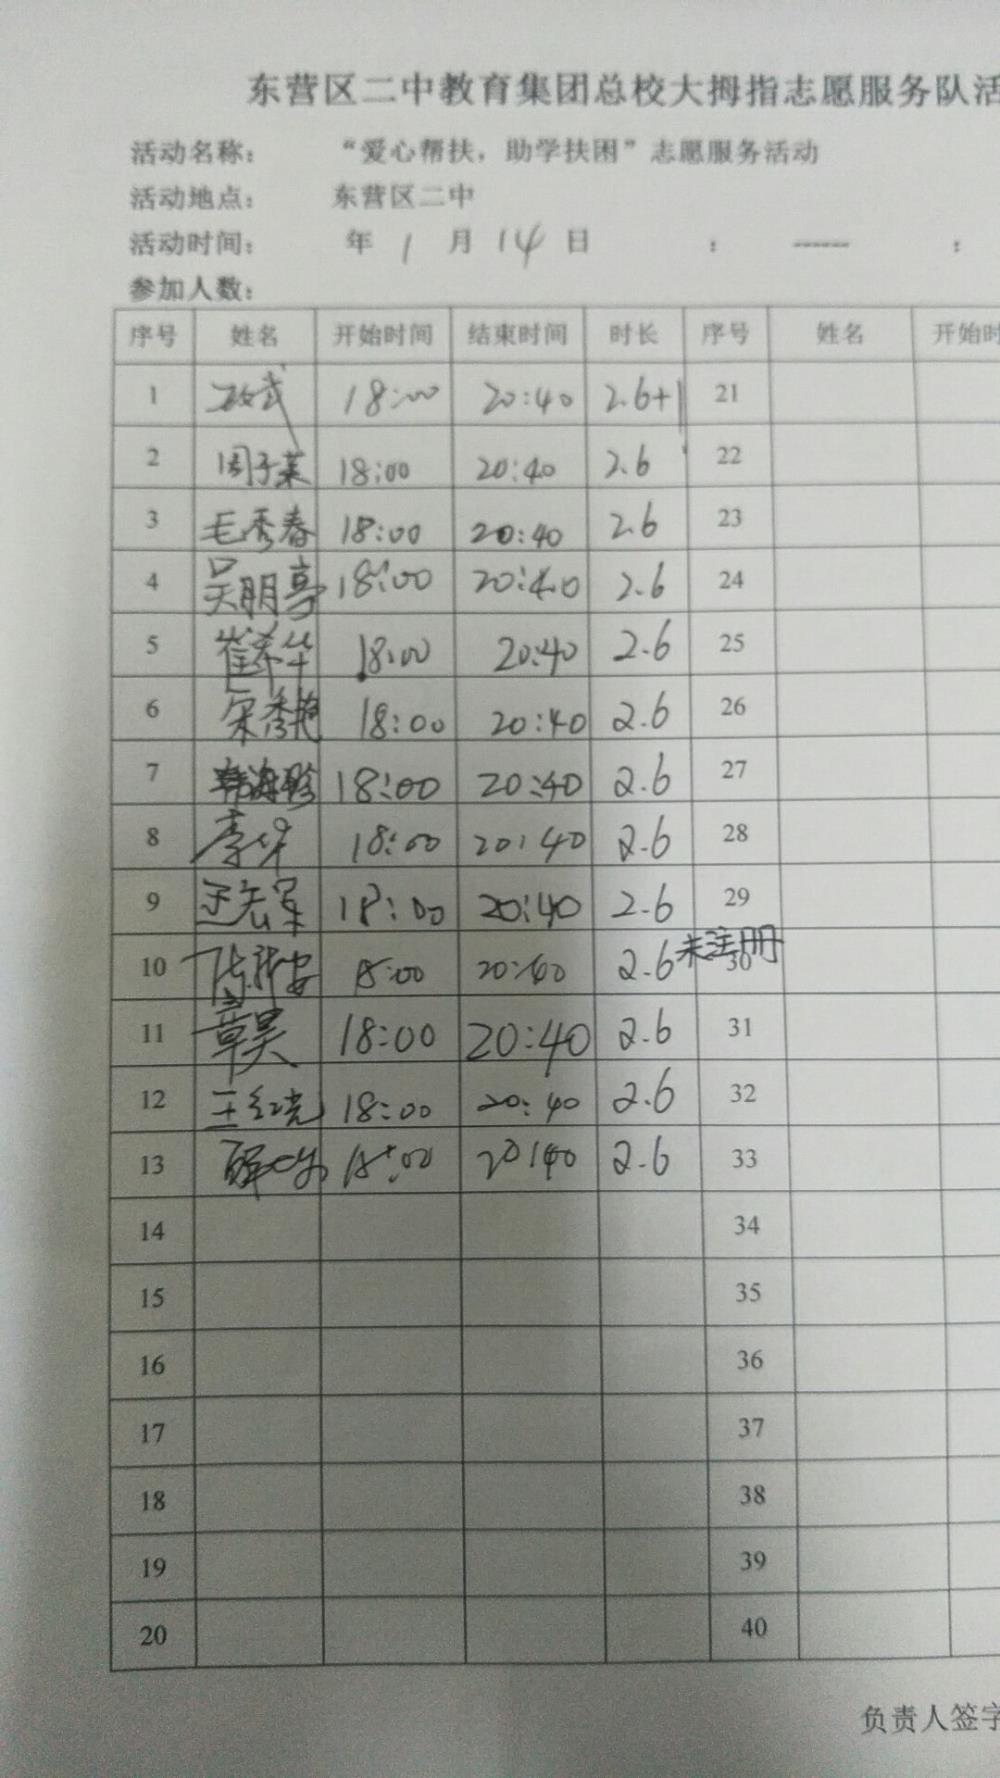 东营区二中教育集团总校大拇指志愿服务队活
活动名称： “爱心帮扶，助学扶困”志愿服务活动
活动地点： 东营区二中
活动时间： 年 1 月 14 日 ： ------ ：
参加人数：
序号 姓名 开始时间 结束时间 时长 序号 姓名 开始时
1 18:00 20:40 2.6+1 21
2 周子莱 18:00 20:40 2.6 22
3 毛秀春 18:00 20:40 2.6 23
4 吴朋亭 18:00 20:40 2.6 24
5 崔希华 18:00 20:40 2.6 25
6 宋秀艳 18:00 20:40 2.6 26
7 韩海珍 18:00 20:40 2.6 27
8 李华 18:00 20:40 2.6 28
9 王宏军 18:00 20:40 2.6 29
10 18:00 20:40 2.6 未注册 30
11 章昊 18:00 20:40 2.6 31
12 王红亮 18:00 20:40 2.6 32
13 18:00 20:40 2.6 33
14 34
15 35
16 36
17 37
18 38
19 39
20 40
负责人签字